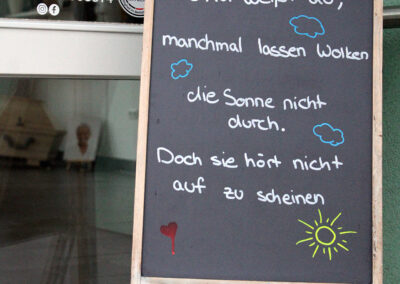 manchmal lassen Wolken
die Sonne nicht
durch.
Doch sie hört nicht
auf zu scheinen